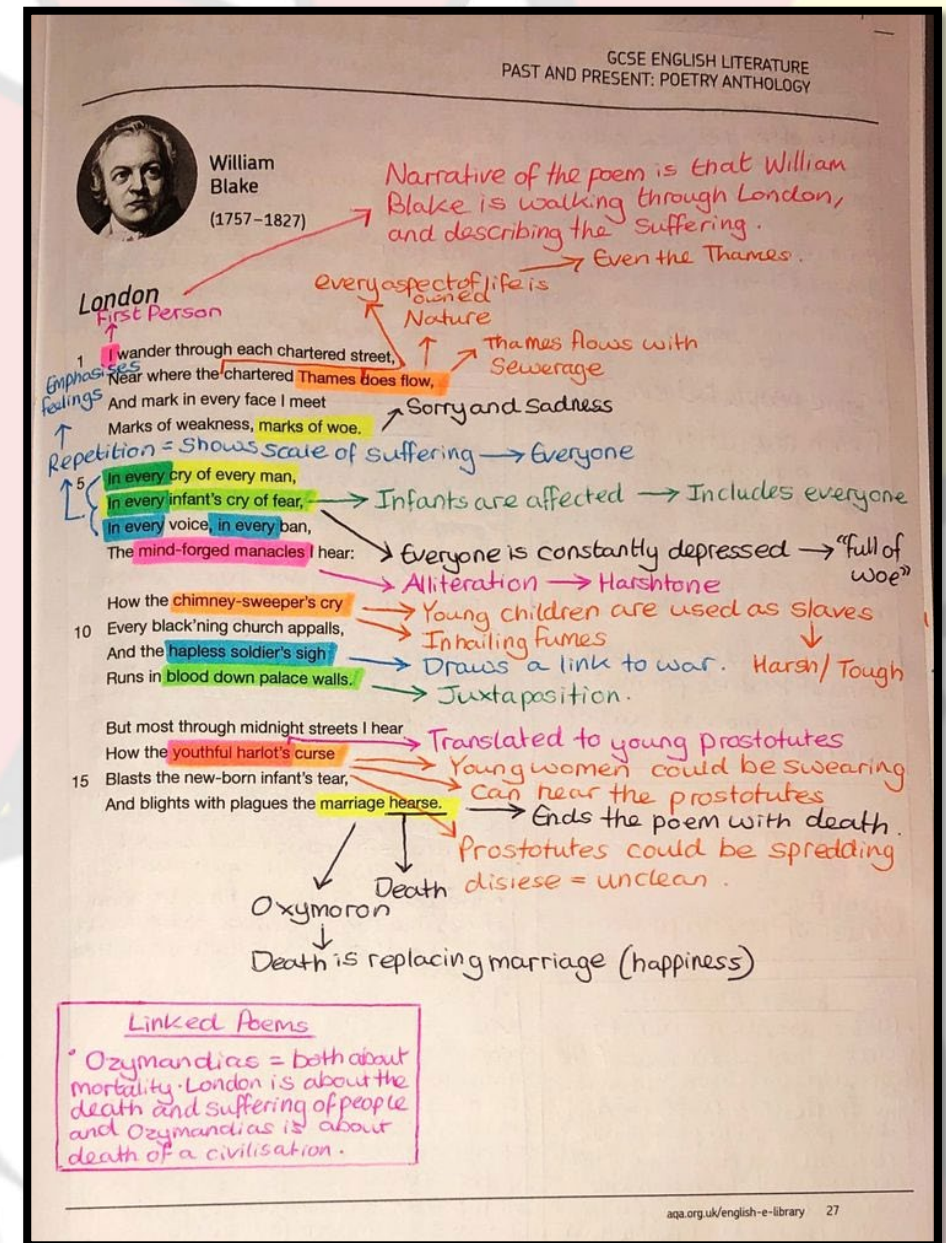 GCSE ENGLISH LITERATURE
PAST AND PRESENT: POETRY ANTHOLOGY
William
Blake
(1757–1827)
Narrative of the poem is that William
Blake is walking through London,
and describing the suffering.
→ Even the Thames.
every aspect of life is
owned
London
First Person
Nature
Thames flows with
Sewerage
1 I wander through each chartered street,
Near where the chartered Thames does flow,
And mark in every face I meet
Marks of weakness, marks of woe.
Emphasises
feelings
Sorry and Sadness
Repetition = Shows scale of suffering → Everyone
5 In every cry of every man,
In every infant's cry of fear,
→ Infants are affected → Includes everyone
In every voice, in every ban,
The mind-forged manacles I hear:
Everyone is constantly depressed → "full of
woe"
Alliteration → Harsh tone
How the chimney-sweeper's cry
10 Every black'ning church appalls,
And the hapless soldier's sigh
Runs in blood down palace walls.
Young children are used as slaves
Inhailing fumes
Harsh/Tough
Draws a link to war.
Juxtaposition.
But most through midnight streets I hear
How the youthful harlot's curse
15 Blasts the new-born infant's tear,
And blights with plagues the marriage hearse.
Translated to young prostotutes
Young women could be swearing
Can hear the prostotutes
Ends the poem with death.
Prostotutes could be spredding
disiese = unclean.
Oxymoron
Death
Death is replacing marriage (happiness)
Linked Poems
• Ozymandias = both about
mortality. London is about the
death and suffering of people
and Ozymandias is about
death of a civilisation.
aqa.org.uk/english-e-library 27